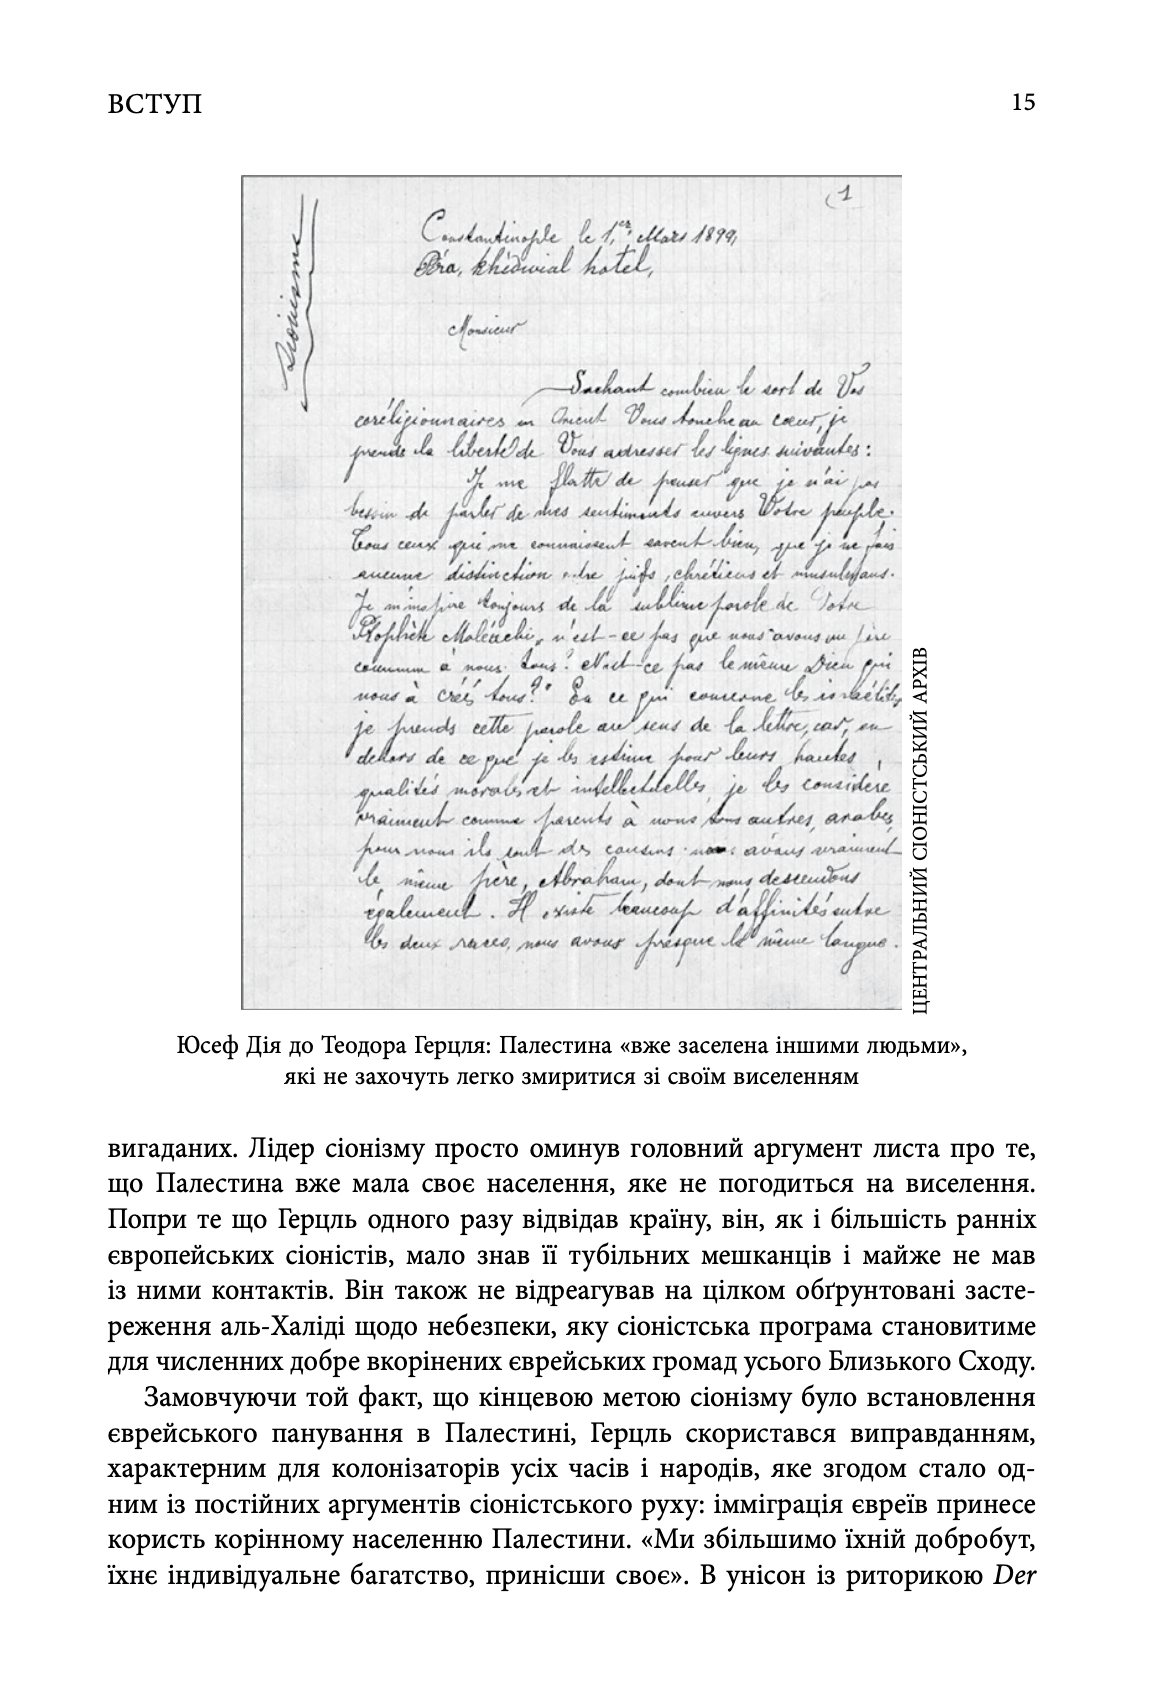 ВСТУП
15
(1
Sionisme
Constantinople le 1er Mars 1899,
Péra, khédivial hotel,
Monsieur
Sachant combien le sort de Vos
coréligionnaires en Orient Vous touche au cœur, je
prends la liberté de Vous adresser les lignes suivantes :
Je me flatte de penser que je n'ai pas
besoin de parler de mes sentiments envers Votre peuple.
Tous ceux qui me connaissent savent bien, que je ne fais
aucune distinction entre juifs, chrétiens et musulmans.
Je m'inspire toujours de la sublime parole de Votre
Prophète Malachi, n'est-ce pas que nous avons un père
commun à nous tous? N'est-ce pas le même Dieu qui
nous à créé tous?" En ce qui concerne les israélites
je prends cette parole au sens de la lettre, car, en
dehors de ce que je les estime pour leurs hautes
qualités morales et intellectuelles, je les considère
vraiment comme parents à nous tous autres, arabes,
pour nous ils sont des cousins nous avons vraiment
le même père, Abraham, dont nous descendons
également. Il existe beaucoup d'affinités entre
les deux races, nous avons presque la même langue.
ЦЕНТРАЛЬНИЙ СІОНІСТСЬКИЙ АРХІВ
Юсеф Дія до Теодора Герцля: Палестина «вже заселена іншими людьми»,
які не захочуть легко змиритися зі своїм виселенням
вигаданих. Лідер сіонізму просто оминув головний аргумент листа про те,
що Палестина вже мала своє населення, яке не погодиться на виселення.
Попри те що Герцль одного разу відвідав країну, він, як і більшість ранніх
європейських сіоністів, мало знав її тубільних мешканців і майже не мав
із ними контактів. Він також не відреагував на цілком обґрунтовані засте-
реження аль-Халіді щодо небезпеки, яку сіоністська програма становитиме
для численних добре вкорінених єврейських громад усього Близького Сходу.
Замовчуючи той факт, що кінцевою метою сіонізму було встановлення
єврейського панування в Палестині, Герцль скористався виправданням,
характерним для колонізаторів усіх часів і народів, яке згодом стало од-
ним із постійних аргументів сіоністського руху: імміграція євреїв принесе
користь корінному населенню Палестини. «Ми збільшимо їхній добробут,
їхнє індивідуальне багатство, принісши своє». В унісон із риторикою Der